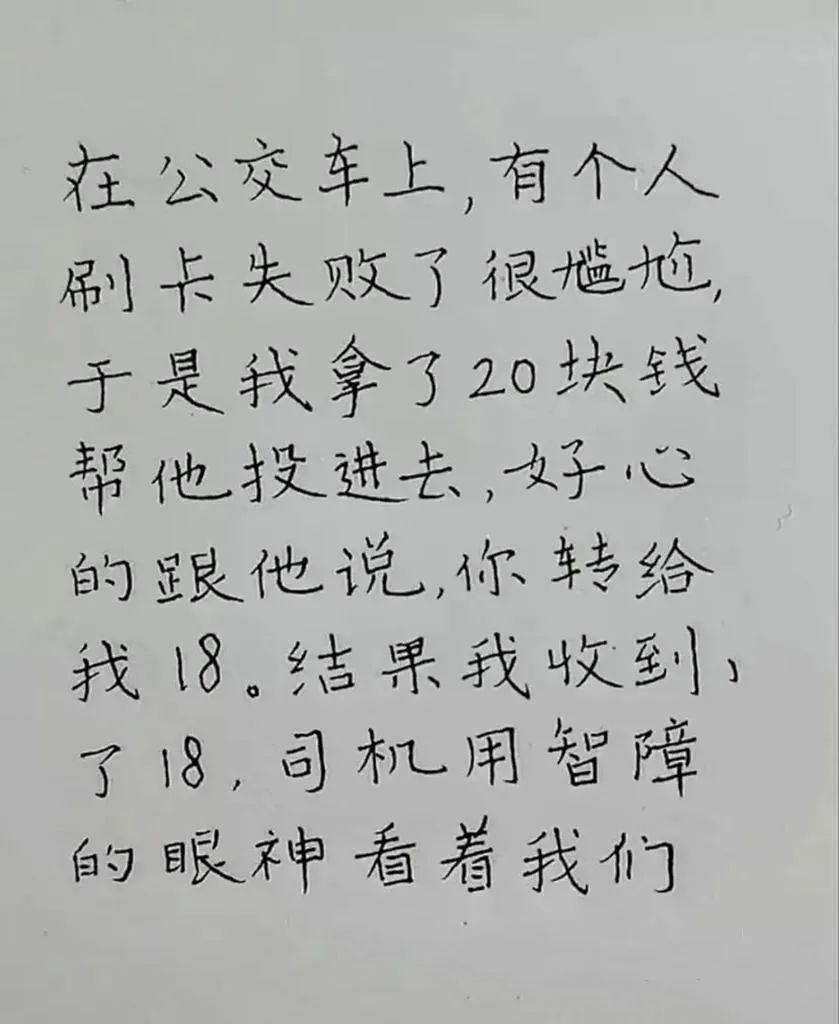 在公交车上,有个人
刷卡失败了很尴尬,
于是我拿了20块钱
帮他投进去,好心
的跟他说,你转给
我18。结果我收到、
了18,司机用智障
的眼神看着我们